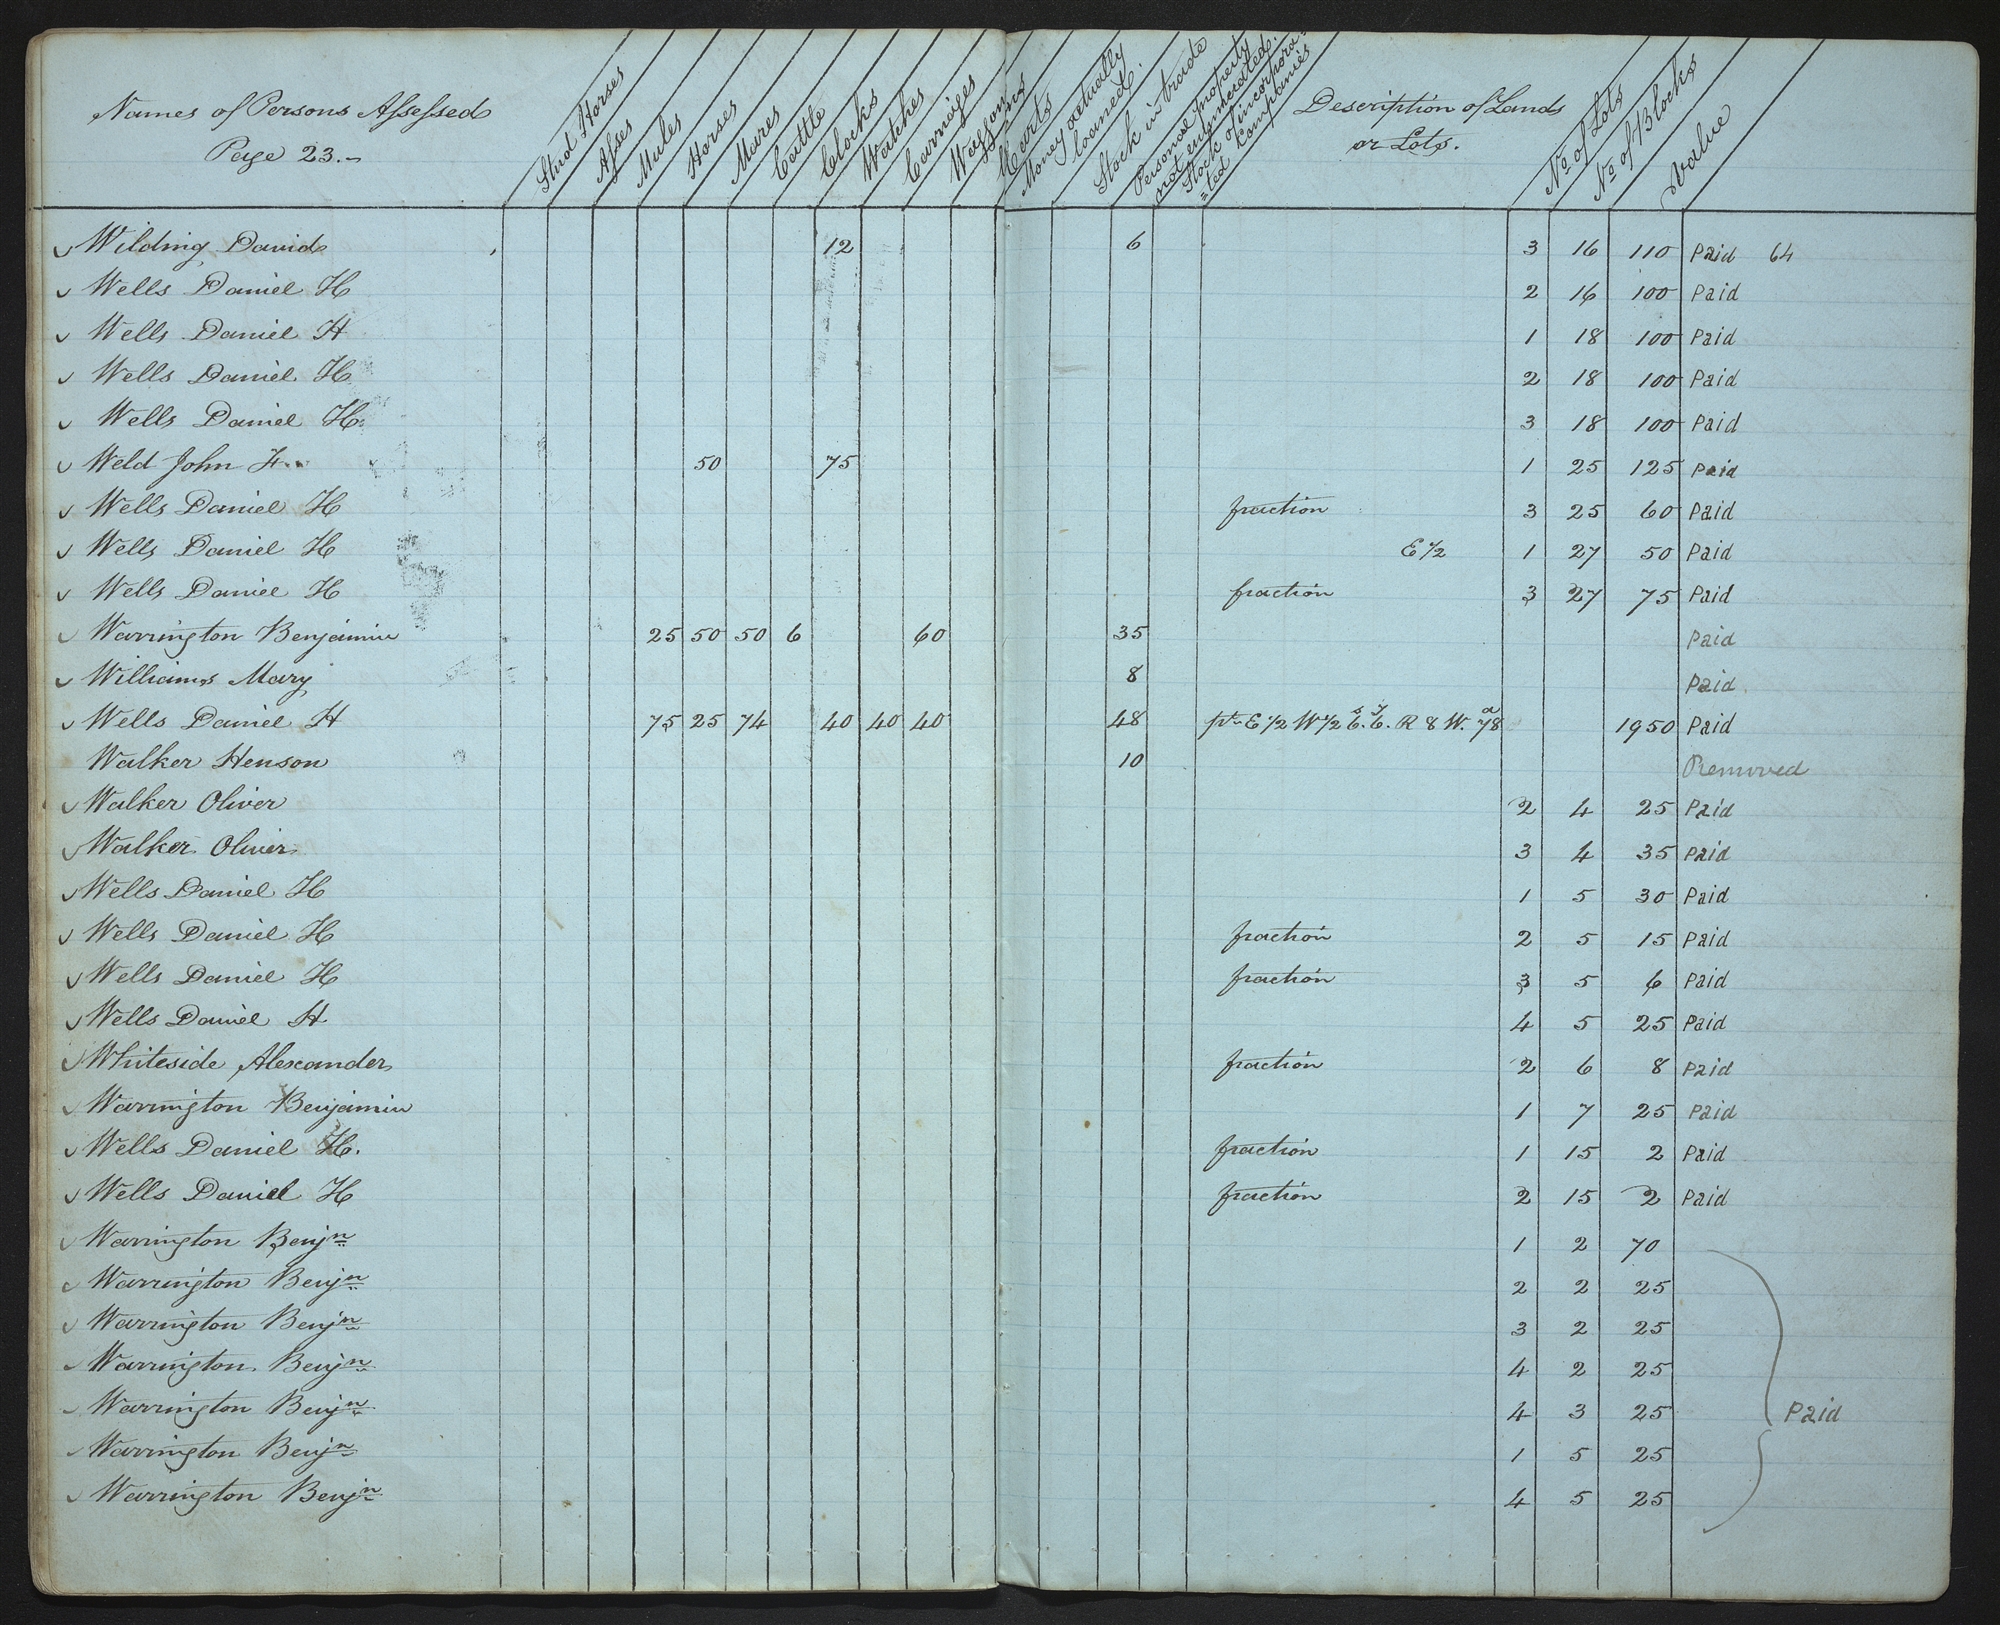 Names of Persons Assessed
Page 23.-
Stud Horses
Asses
Mules
Horses
Mares
Cattle
Clocks
Watches
Carriages
Waggons
Carts
Money actually loaned.
Stock in trade
Personal property not enumerated.
Stock of incorpora=
=ted Companies
Description of Lands
or Lots.
No of Lots
No of Blocks
Value
Wilding David 12 6 3 16 110 Paid 64
Wells Daniel H 2 16 100 Paid
Wells Daniel H 1 18 100 Paid
Wells Daniel H 2 18 100 Paid
Wells Daniel H. 3 18 100 Paid
Weld John F. 50 75 1 25 125 Paid
Wells Daniel H fraction 3 25 60 Paid
Wells Daniel H E 1/2 1 27 50 Paid
Wells Daniel H fraction 3 27 75 Paid
Warrington Benjamin 25 50 50 6 60 35 Paid
Williams Mary 8 Paid
Wells Daniel H 75 25 74 40 40 40 48 pt E 1/2 W 1/2 6. 6. R 8 W. 78 1950 Paid
Walker Henson 10 Removed
Walker Oliver 2 4 25 Paid
Walker Oliver 3 4 35 Paid
Wells Daniel H 1 5 30 Paid
Wells Daniel H fraction 2 5 15 Paid
Wells Daniel H fraction 3 5 6 Paid
Wells Daniel H 4 5 25 Paid
Whiteside Alexander fraction 2 6 8 Paid
Warrington Benjamin 1 7 25 Paid
Wells Daniel H. fraction 1 15 2 Paid
Wells Daniel H fraction 2 15 2 Paid
Warrington Benjn 1 2 70
Warrington Benjn 2 2 25
Warrington Benjn 3 2 25
Warrington Benjn 4 2 25
Warrington Benjn 4 3 25 Paid
Warrington Benjn 1 5 25
Warrington Benjn 4 5 25